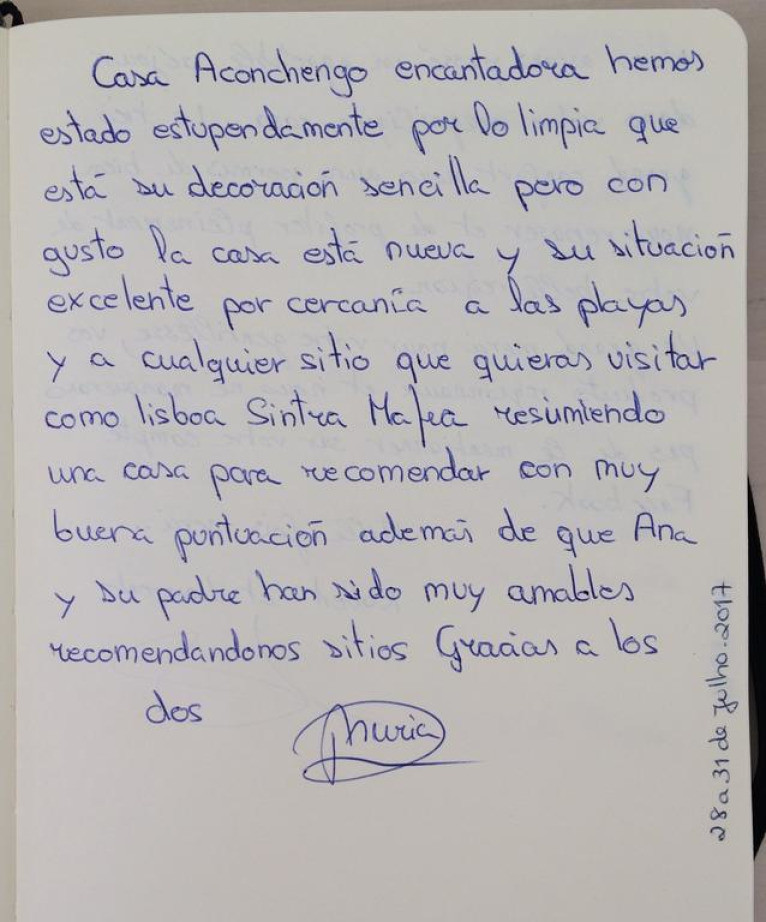 Casa Aconchengo encantadora hemos
estado estupendamente por lo limpia que
está su decoración sencilla pero con
gusto la casa está nueva y su situación
excelente por cercanía a las playas
y a cualquier sitio que quieras visitar
como lisboa Sintra Mafra resumiendo
una casa para recomendar con muy
buena puntuación además de que Ana
y su padre han sido muy amables
recomendandonos sitios Gracias a los
dos
Nuria
28 a 31 de julho. 2017